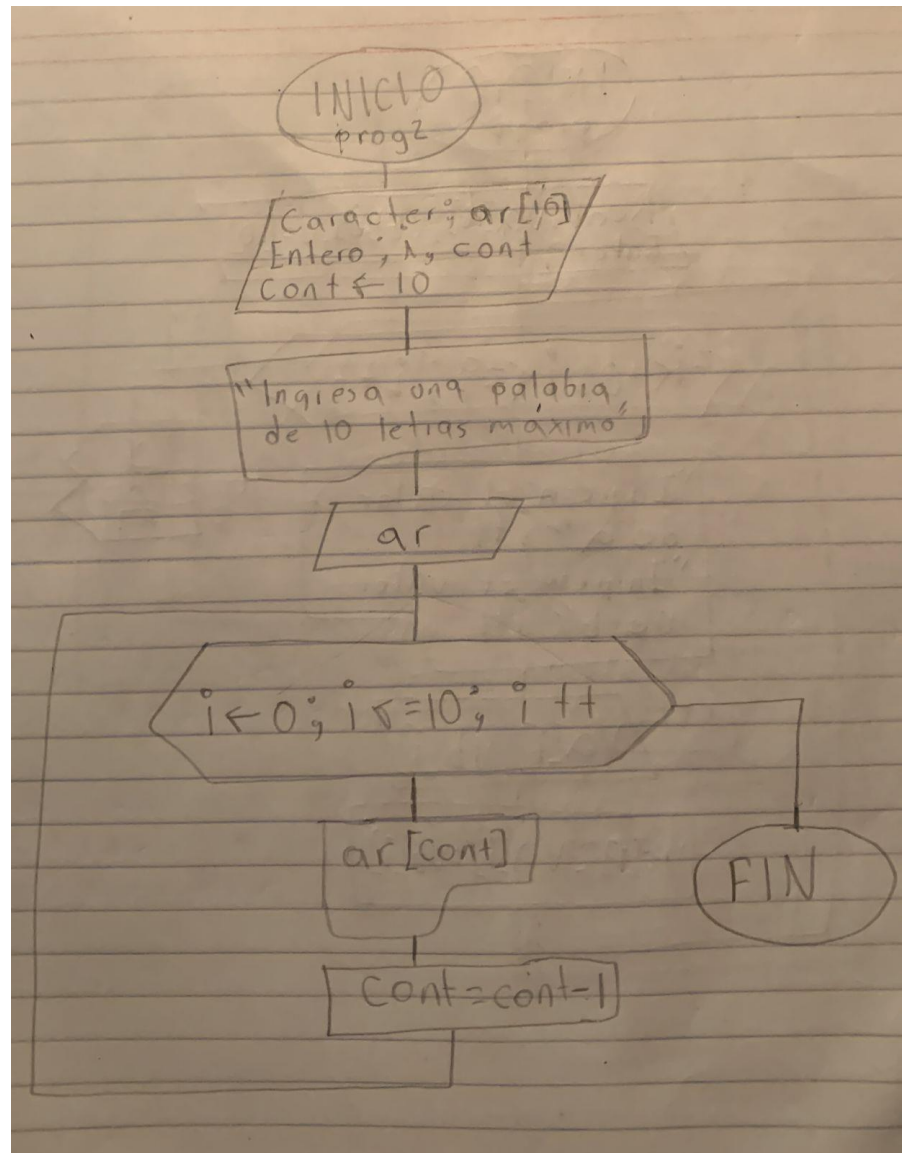 INICIO
prog2
Caracter; ar[10]
Entero; i, cont
Cont ← 10
"Ingresa una palabra
de 10 letras máximo"
ar
i ← 0; i <= 10; i ++
ar[cont]
Cont = cont - 1
FIN